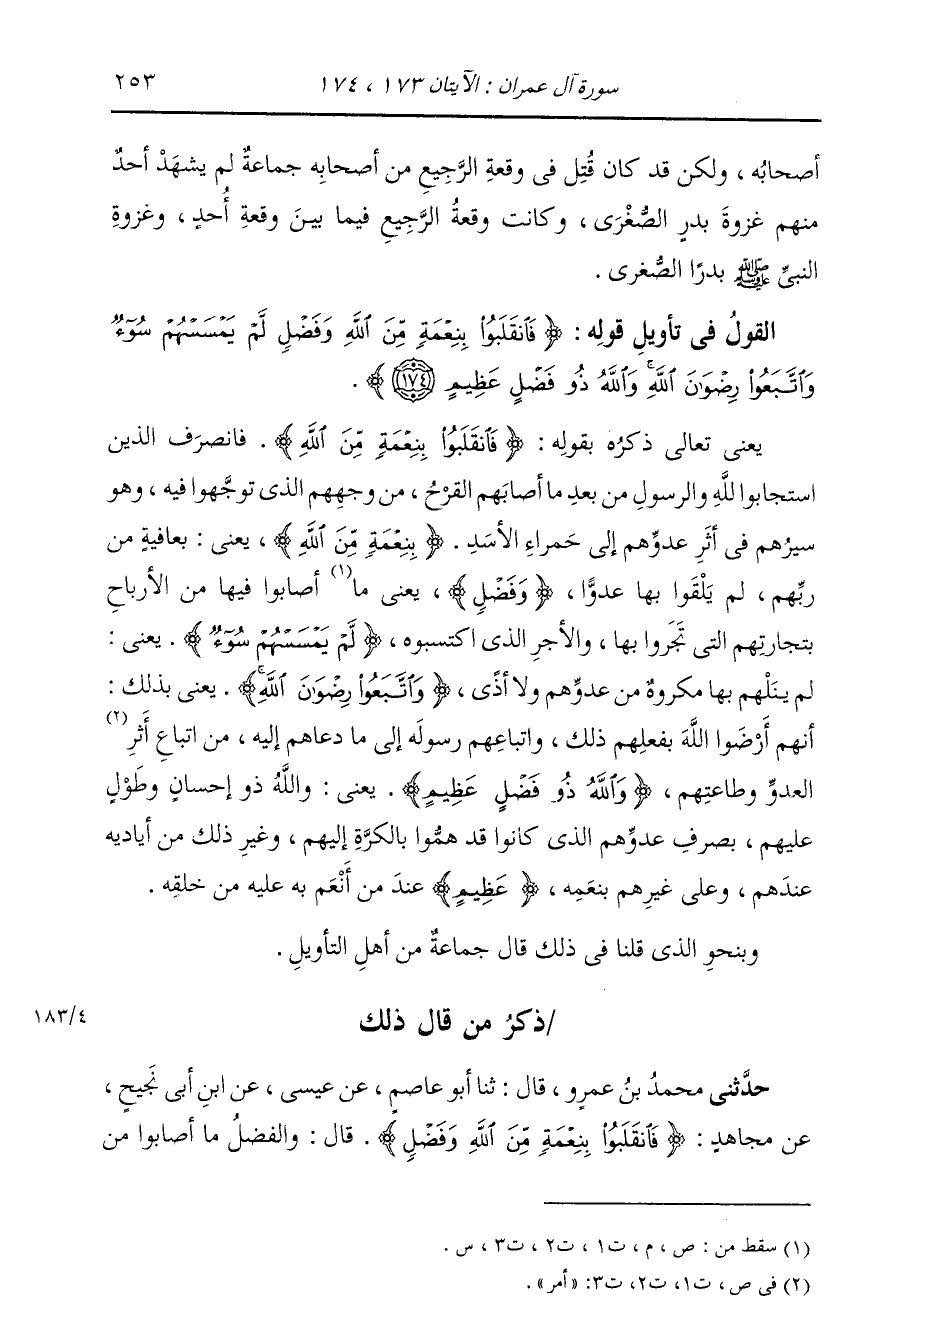 سورة آل عمران : الآيتان ١٧٣ ، ١٧٤ ٢٥٣
أصحابُه ، ولكن قد كان قُتِل فى وقعةِ الرَّجيعِ من أصحابِه جماعةٌ لم يشهَدْ أحدٌ
منهم غزوةَ بدرٍ الصُّغْرَى ، وكانت وقعةُ الرَّجيعِ فيما بينَ وقعةِ أُحدٍ ، وغزوةِ
النبىِّ ﷺ بدرًا الصُّغرى .
القولُ فى تأويلِ قولِه : ﴿ فَٱنقَلَبُوا۟ بِنِعْمَةٍ مِّنَ ٱللَّهِ وَفَضْلٍ لَّمْ يَمْسَسْهُمْ سُوٓءٌ
وَٱتَّبَعُوا۟ رِضْوَٰنَ ٱللَّهِ ۗ وَٱللَّهُ ذُو فَضْلٍ عَظِيمٍ ١٧٤ ﴾ .
يعنى تعالى ذكرُه بقولِه : ﴿ فَٱنقَلَبُوا۟ بِنِعْمَةٍ مِّنَ ٱللَّهِ ﴾ . فانصرَف الذين
استجابوا للَّهِ والرسولِ من بعدِ ما أصابَهم القرْحُ ، من وجهِهم الذى توجَّهوا فيه ، وهو
سيرُهم فى أثَرِ عدوِّهم إلى حَمراءِ الأسَدِ . ﴿ بِنِعْمَةٍ مِّنَ ٱللَّهِ ﴾ ، يعنى : بعافيةٍ من
ربِّهم ، لم يَلْقَوا بها عدوًّا ، ﴿ وَفَضْلٍ ﴾ ، يعنى ما(١) أصابوا فيها من الأرباحِ
بتجارتِهم التى تَجَروا بها ، والأجرِ الذى اكتسبوه ، ﴿ لَّمْ يَمْسَسْهُمْ سُوٓءٌ ﴾ . يعنى :
لم ينَلْهم بها مكروهٌ من عدوِّهم ولا أذًى ، ﴿ وَٱتَّبَعُوا۟ رِضْوَٰنَ ٱللَّهِ ۗ ﴾ . يعنى بذلك :
أنهم أَرْضَوا اللَّهَ بفعلِهم ذلك ، واتباعِهم رسولَه إلى ما دعاهم إليه ، من اتباعِ أَثرِ(٢)
العدوِّ وطاعتِهم ، ﴿ وَٱللَّهُ ذُو فَضْلٍ عَظِيمٍ ﴾ . يعنى : واللَّهُ ذو إحسانٍ وطَوْلٍ
عليهم ، بصرفِ عدوِّهم الذى كانوا قد همُّوا بالكرَّةِ إليهم ، وغيرِ ذلك من أياديه
عندَهم ، وعلى غيرِهم بنعَمِه ، ﴿ عَظِيمٍ ﴾ عندَ من أَنْعَم به عليه من خلقِه .
وبنحوِ الذى قلنا فى ذلك قال جماعةٌ من أهلِ التأويلِ .
/ذكرُ من قال ذلك ١٨٣/٤
حدَّثنى محمدُ بنُ عمرٍو ، قال : ثنا أبو عاصمٍ ، عن عيسى ، عن ابنِ أبى نَجيحٍ ،
عن مجاهدٍ : ﴿ فَٱنقَلَبُوا۟ بِنِعْمَةٍ مِّنَ ٱللَّهِ وَفَضْلٍ ﴾ . قال : والفضلُ ما أصابوا من
(١) سقط من : ص ، م ، ت١ ، ت٢ ، ت٣ ، س .
(٢) فى ص ، ت١، ت٢، ت٣: «أمر» .